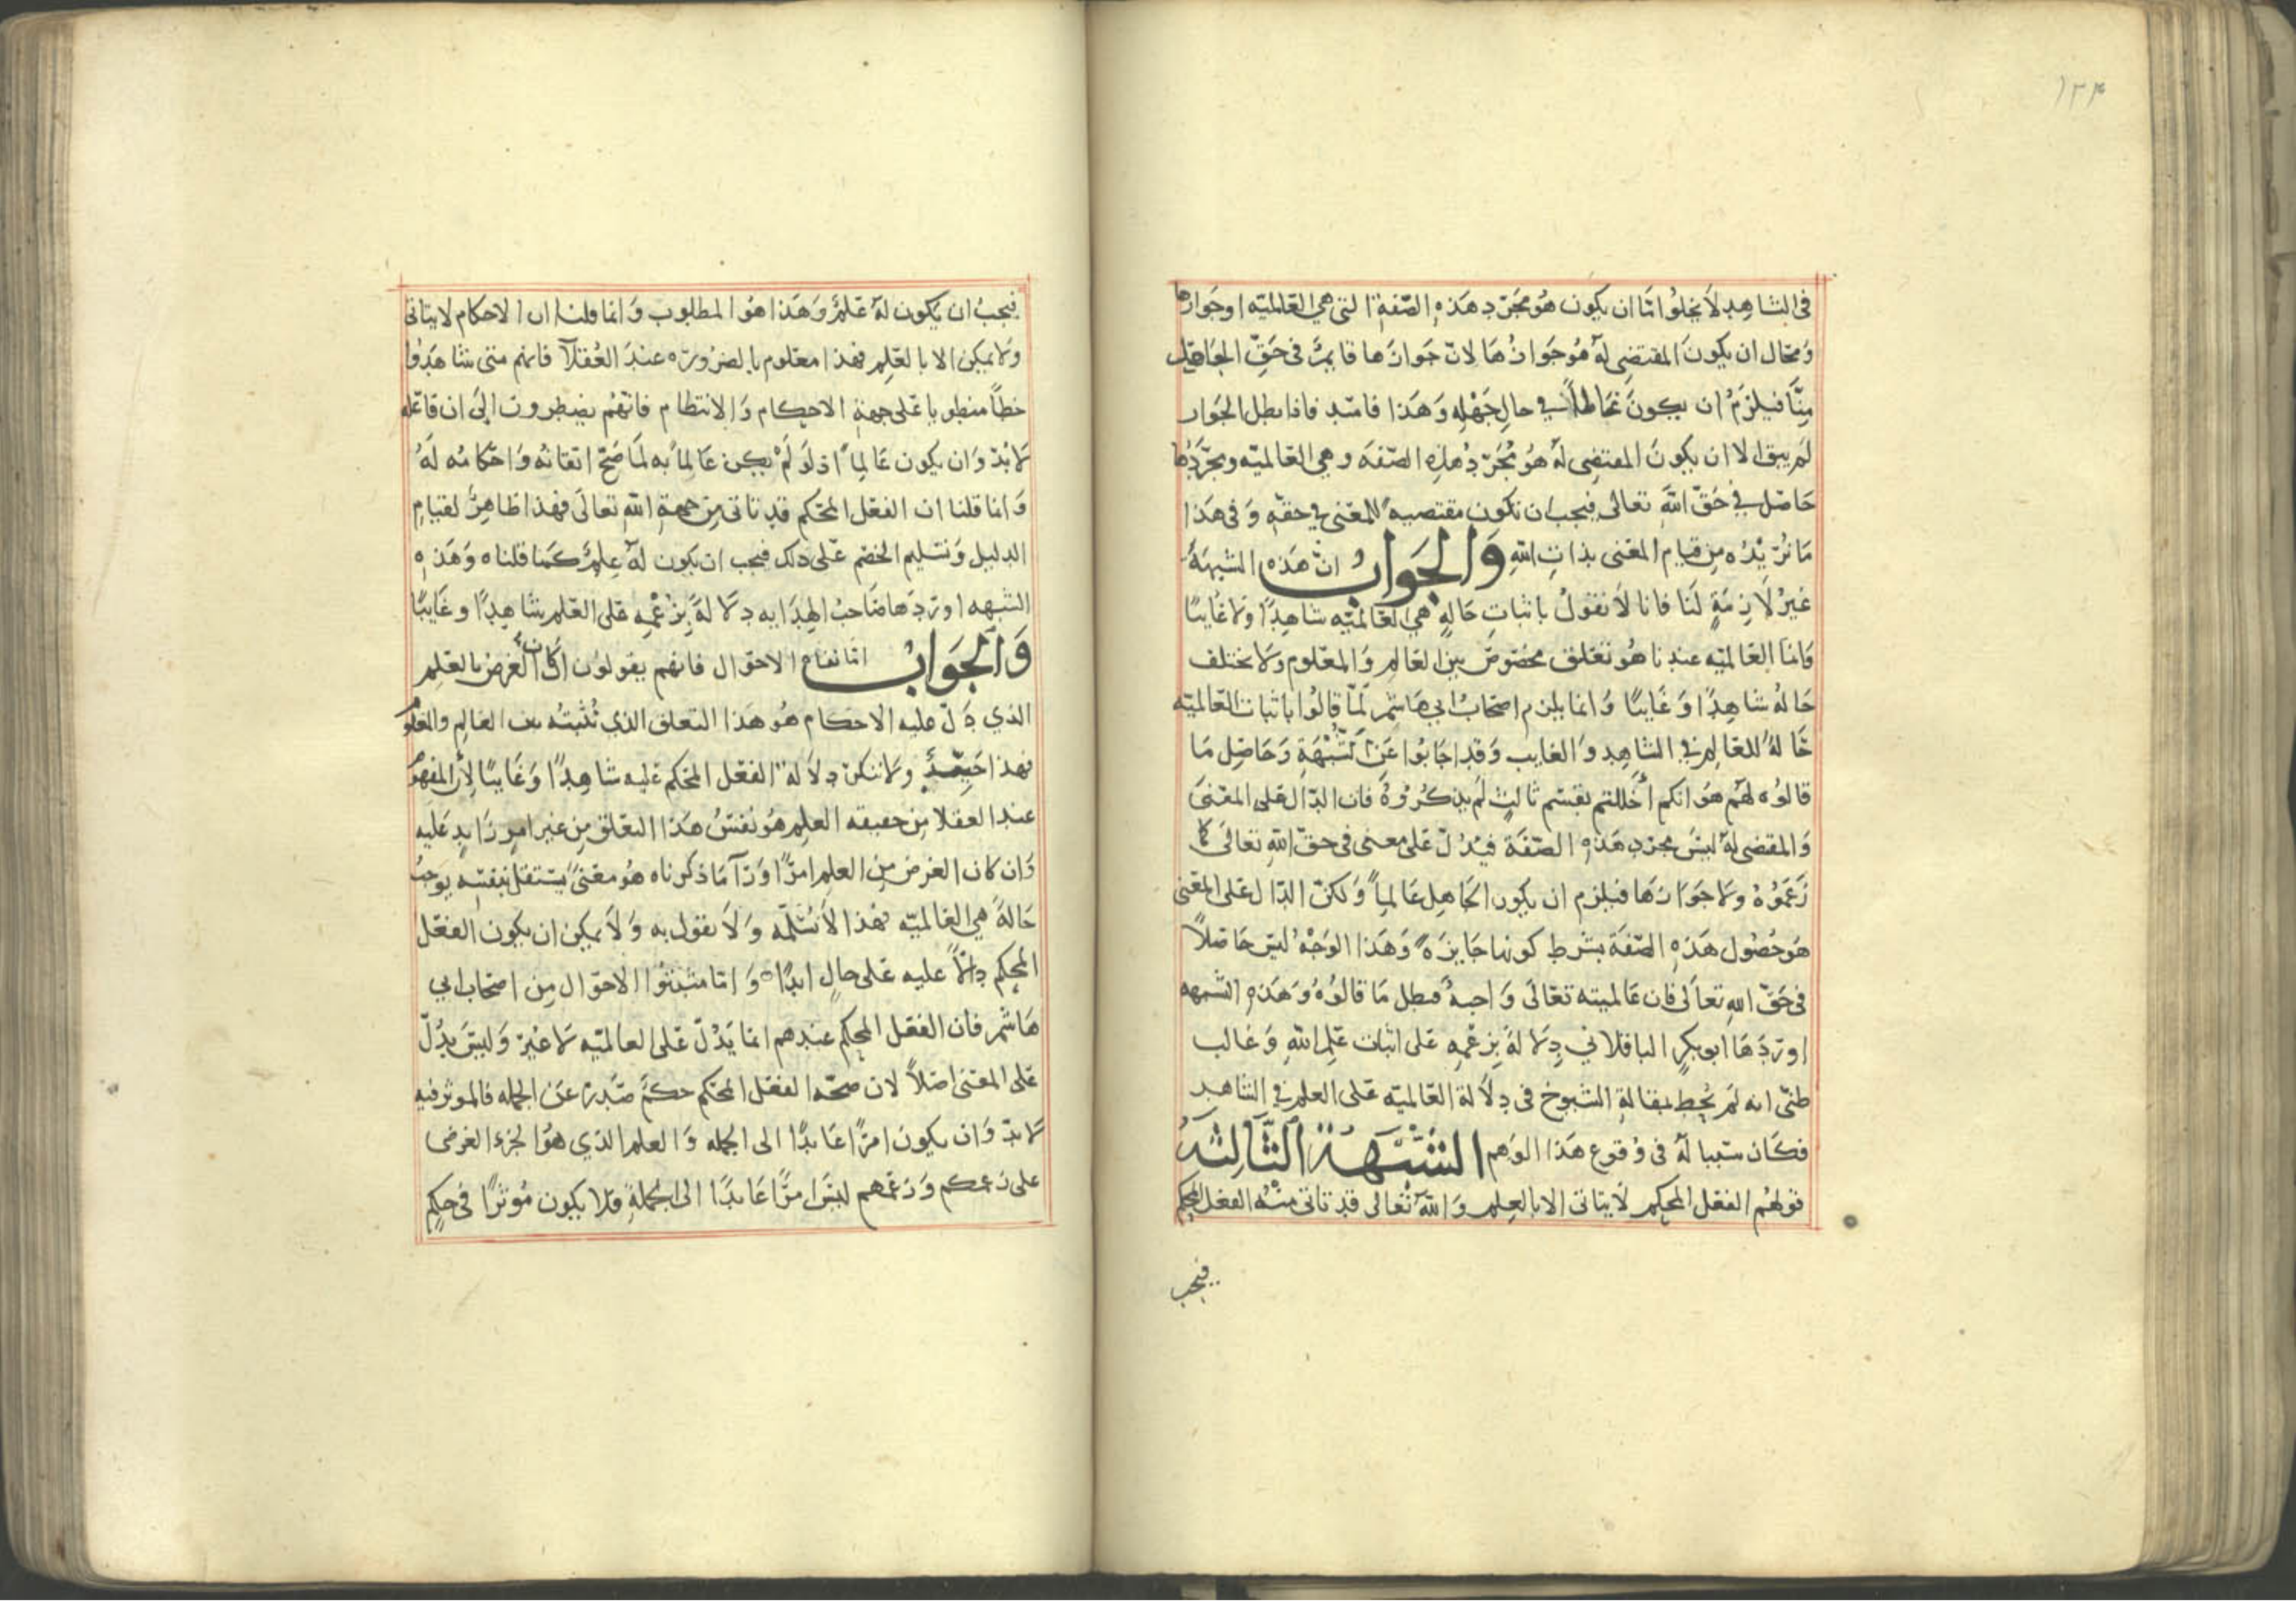 ١٢٤
في الشاهد لا يخلوا امّا ان يكون هو مجرّد هذه الصّفة التي هي العَالميّه او جَوازها
وَمحال ان يكونَ المقتضِي لهُ هُو جَوازُهَا لانّ جَوازَها قايمٌ في حَقّ الجَاهل
مِنَّا فيلزَمُ ان يكونَ عَالماً في حالِ جَهْلهِ وَهَذا فاسّد فاذا بطل الجَواز
لَم يبق الا ان يكونَ المقتضِي لهُ هُو مُجَرّدُ هذِه الصّفَه وهي العَالميّه ومجرّدُها
حَاصل في حَقّ اللهَ تعالى فيجب ان تكون مقتضيه للمَعْنى في حقّهِ وَفي هَذا
مَا نُريْدُه مِن قيام المعَنى بذاتِ اللهِ وَالجَوَابُ انّ هَذه الشبهَهُ
غيرُ لاَزِمَةٍ لَنا فانا لاَ نقولُ باثباتِ حَالةٍ هي العَالميّه شاهِدًا ولا غايبًا
وَامّا العَالميّه عندنا هُو تعَلق مخصُوصٌ بين العَالم وَالمعَلوم ولا يختلف
حَالهُ شاهِدًا وَغايبًا وَانما يلزم اصْحَابُ ابي هَاشم لمّا قالُوا باثبات العَالميّه
حَالهُ للعَالِم في الشاهِد وَالغايب وَقد اجَابُوا عَن الشُبْهَةِ وَحَاصِل مَا
قالوُه لهُم هُوَ انكم اخللتم بقسْم ثالثٍ لَم يذكُرُوهُ فان الدّال عَلى المعَنىَ
وَالمقتضى لهُ ليسَ مجرّد هَذهِ الصّفَة فيَدُلّ عَلى معنى في حقّ اللهِ تعالىَ كما
زَعَمُوهُ ولا جَوَازهَا فيلزم ان يكون الجَاهِل عَالماً وَلكنّ الدّال عَلى المعَنى
هو حُصُول هَذهِ الصّفَة بشرط كونها جَايزَه وَهَذا الوَجْهُ ليسَ حَاصلاً
في حَقّ اللهِ تعالَى فان عَالميته تعَالى وَاجبهُ فبطل مَا قالوُهُ وَهَذهِ الشبهه
اورَدَهَا ابو بكرٍ الباقلاني دِلالهً بزعْمهِ عَلى اثبات عَلمِ اللهِ وَغالب
ظنّي انه لَم يُحِط بمقالةِ الشيوخ في دِلاَلة العَالميّه عَلى العلم في الشاهد
فكَان سَببا لهُ في وُقوع هَذا الوَهم الشُّبْهَةُ الثَّالِثَةُ
قولهُم الفعَل المحكم لا يتاتى الا بالعِلم وَاللهُ تعَالى قد تاتى مِنْهُ الفعَل المحكم
فيجب
فيجبُ ان يكون لهُ عَلمٌ وَهَذا هُو المطلوب وَانما قلنا ان الاحكام لا يتاتى
ولا يمكن الا بالعَلِم فهذا معَلوم بالضرُورَه عندَ العُقلآ فانهم متى شاهَدُوا
خطّاً منطويا عَلى جهةِ الاحِكام وَالانتظام فانّهُم يضِطرون الى ان فاعَله
لا بدّ وَان يكون عَالِماً اذ لَو لَمْ يكن عَالماً به لمَا صَحّ اتقانُه وَاحكامُه لهُ
وَانما قلنا ان الفعَل المحَكم قد تاتى مِن جهة اللهِ تعالَى فهذا ظاهِرٌ لقيامِ
الدليل وَتسليم الخصَم عَلى ذلك فيجب ان يكون لهُ عِلمٌ كَما قلناه وَهَذهِ
الشبهه اورَدَها صَاحبُ الهِدَايه دِلالهً بزعْمهِ عَلى العَلم شاهِدًا وغَايبًا
وَالجَوَابُ امّا نفاة الاحوَال فانهم يقولوُن ان كان الغَرض بالعَلِم
الذي دَلّ عليه الاحكام هُو هَذا التعَلق الذي نُثْبتُه بين العَالِم والمعَلوُم
فهذا جَيّدٌ ولا ننكرُ دِلاَلة الفعَل المحَكم عَليه شاهِدًا وَغَايبًا لأن المفهوُم
عند العقلا مِن حقيقه العِلم هُو نفسُ هَذا التعَلق مِن غير امرٍ زايدٍ عَليه
وَان كان الغرض مِن العلم امرًا وَرآ مَا ذكرناه هُو معَنىً يستقل بنفسِه يوَجبُ
حَالةً هي العَالميّه فهذا لاَ نُسَلّمه وَلاَ نقول به وَلاَ يمكن ان يكون الفعَل
المحكم دالاً عليه عَلى حالٍ ابدًا وَامّا مثبتوُا الاحوَال مِن اصحَاب ابي
هَاشم فان الفعَل المحِكم عندهم انما يَدُلّ عَلى العالميّه لا غيرَ وَليسَ يَدُلّ
عَلى المعَنى اصَلاً لان صحّه الفعَل المحَكم حكمٌ صَدرَ عَن الجمله فالموثر فيه
لا بدّ وَان يكون امرًا عَايدًا الى الجمله وَالعلم الذي هوُ الجزء الغرضى
على زعمكم وَزعَمهم ليسَ امرًا عَايدًا الى الجُملةِ فلا يكون مُوثرًا في حكمٍ